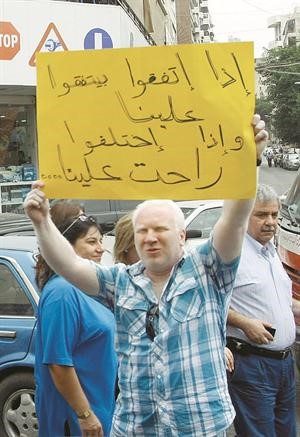 STOP
إذا إتفقوا بيتفقوا
علينا
وإذا إختلفوا
راحت علينا....